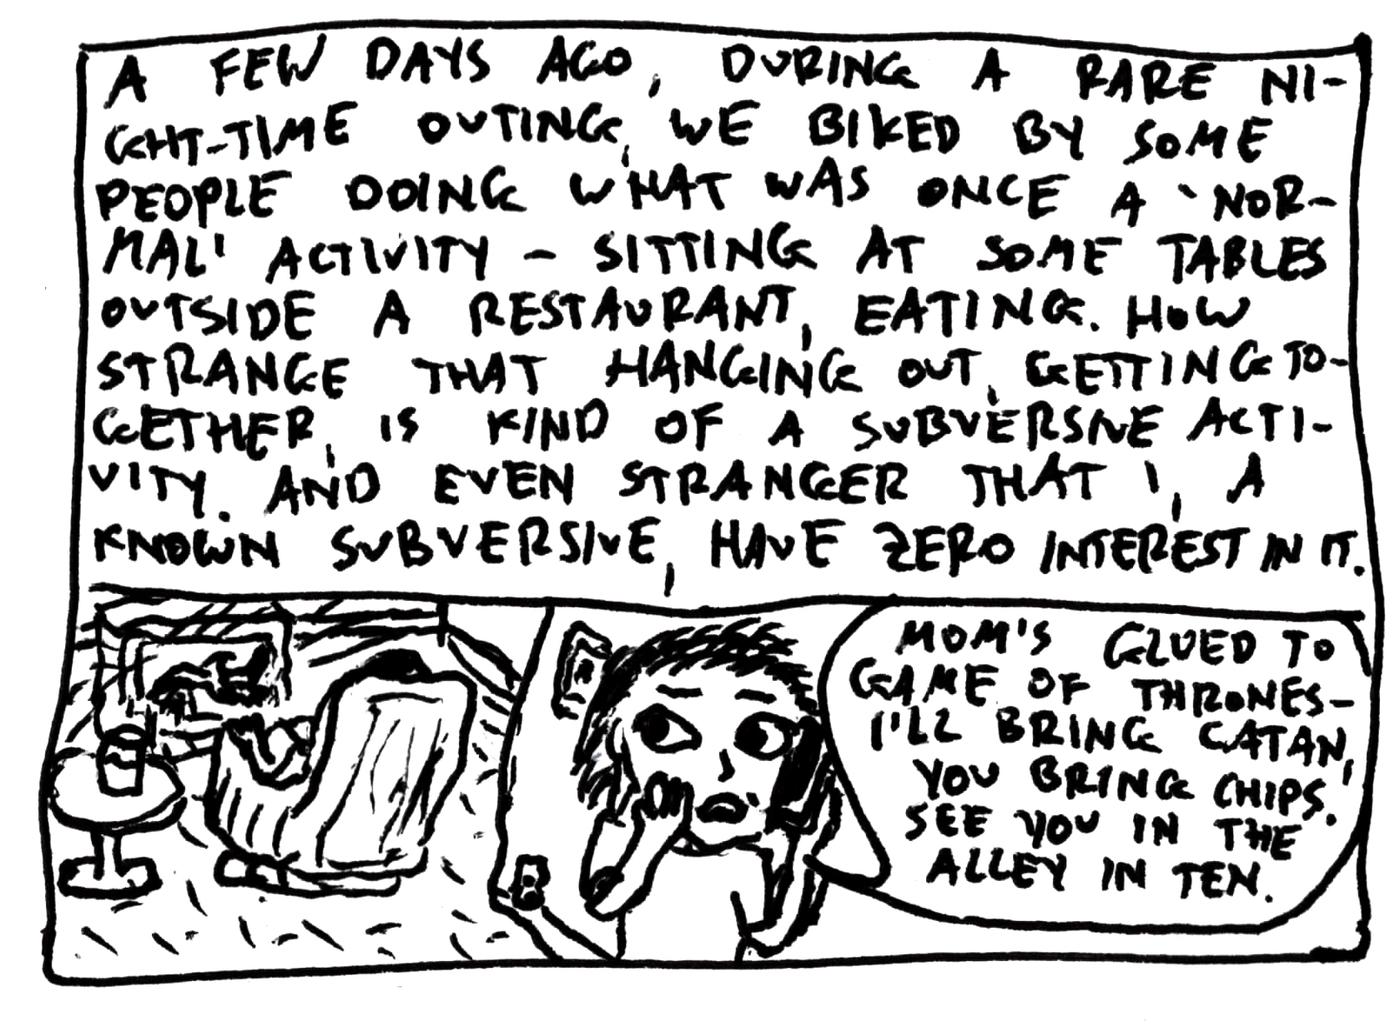 A FEW DAYS AGO, DURING A RARE NI-
GHT-TIME OUTING, WE BIKED BY SOME
PEOPLE DOING WHAT WAS ONCE A 'NOR-
MAL' ACTIVITY - SITTING AT SOME TABLES
OUTSIDE A RESTAURANT, EATING. HOW
STRANGE THAT HANGING OUT, GETTING TO-
GETHER, IS KIND OF A SUBVERSIVE ACTI-
VITY. AND EVEN STRANGER THAT I, A
KNOWN SUBVERSIVE, HAVE ZERO INTEREST IN IT.
MOM'S GLUED TO
GAME OF THRONES-
I'LL BRING CATAN,
YOU BRING CHIPS.
SEE YOU IN THE
ALLEY IN TEN.